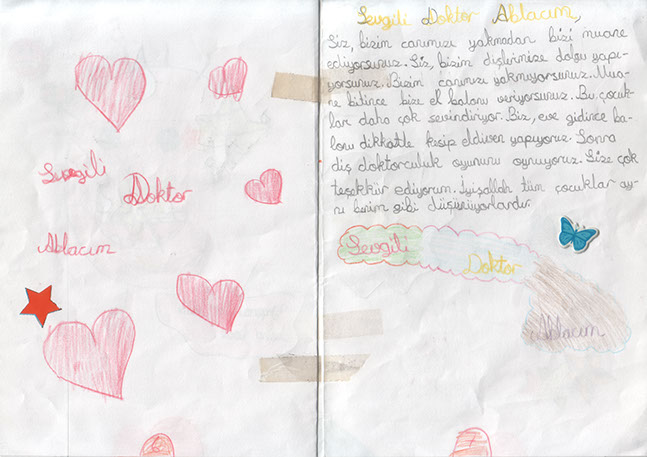 Sevgili
Doktor
Ablacım
Sevgili Doktor Ablacım,
Siz, bizim canımızı yakmadan bizi muane
ediyorsunuz. Siz, bizim dişlerimize dolgu yapı-
yorsunuz. Bizim canımızı yakmıyorsunuz. Mua-
ne bitince bize el balonu veriyorsunuz. Bu, çocuk-
ları daha çok sevindiriyor. Biz, eve gidince ba-
lonu dikkatle kesip eldiven yapıyoruz. Sonra
diş doktorculuk oyununu oynuyoruz. Size çok
teşekkür ediyorum. İyişallah tüm çocuklar ay-
nı benim gibi düşünüyorlardır.
Sevgili
Doktor
Ablacım